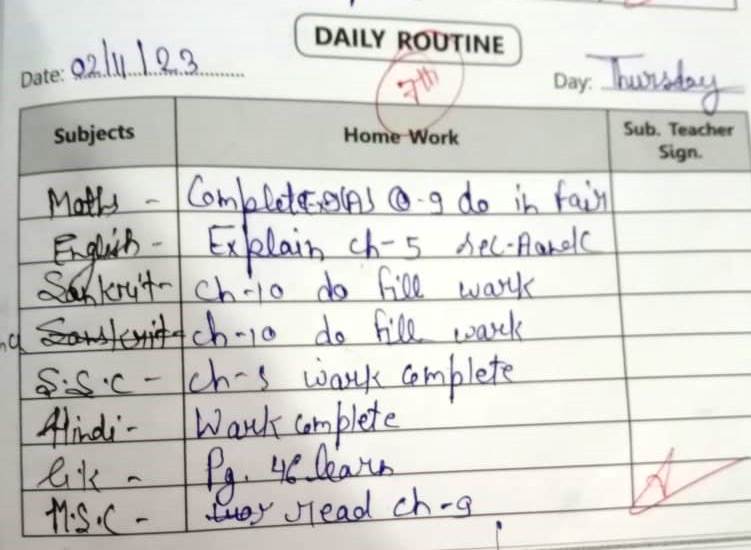 DAILY ROUTINE
Date: 02/11/23
7th
Day: Thursday
Subjects Home Work Sub. Teacher Sign.
Maths - Complete Ex 9(A) Q-9 do in fair
English - Explain ch-5 sec-A and C
Sankrit - ch-10 do fill wark
ch-10 do fill wark
S.S.C - ch-5 wark complete
Hindi - Wark complete
G.K - Pg. 46 learn
M.S.C - read ch-9